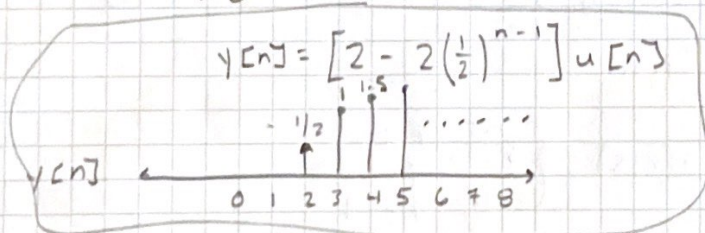 y[n] = [2 - 2(1/2)^{n-1}] u[n]
1/2 1 1.5 ......
y[n]
0 1 2 3 4 5 6 7 8